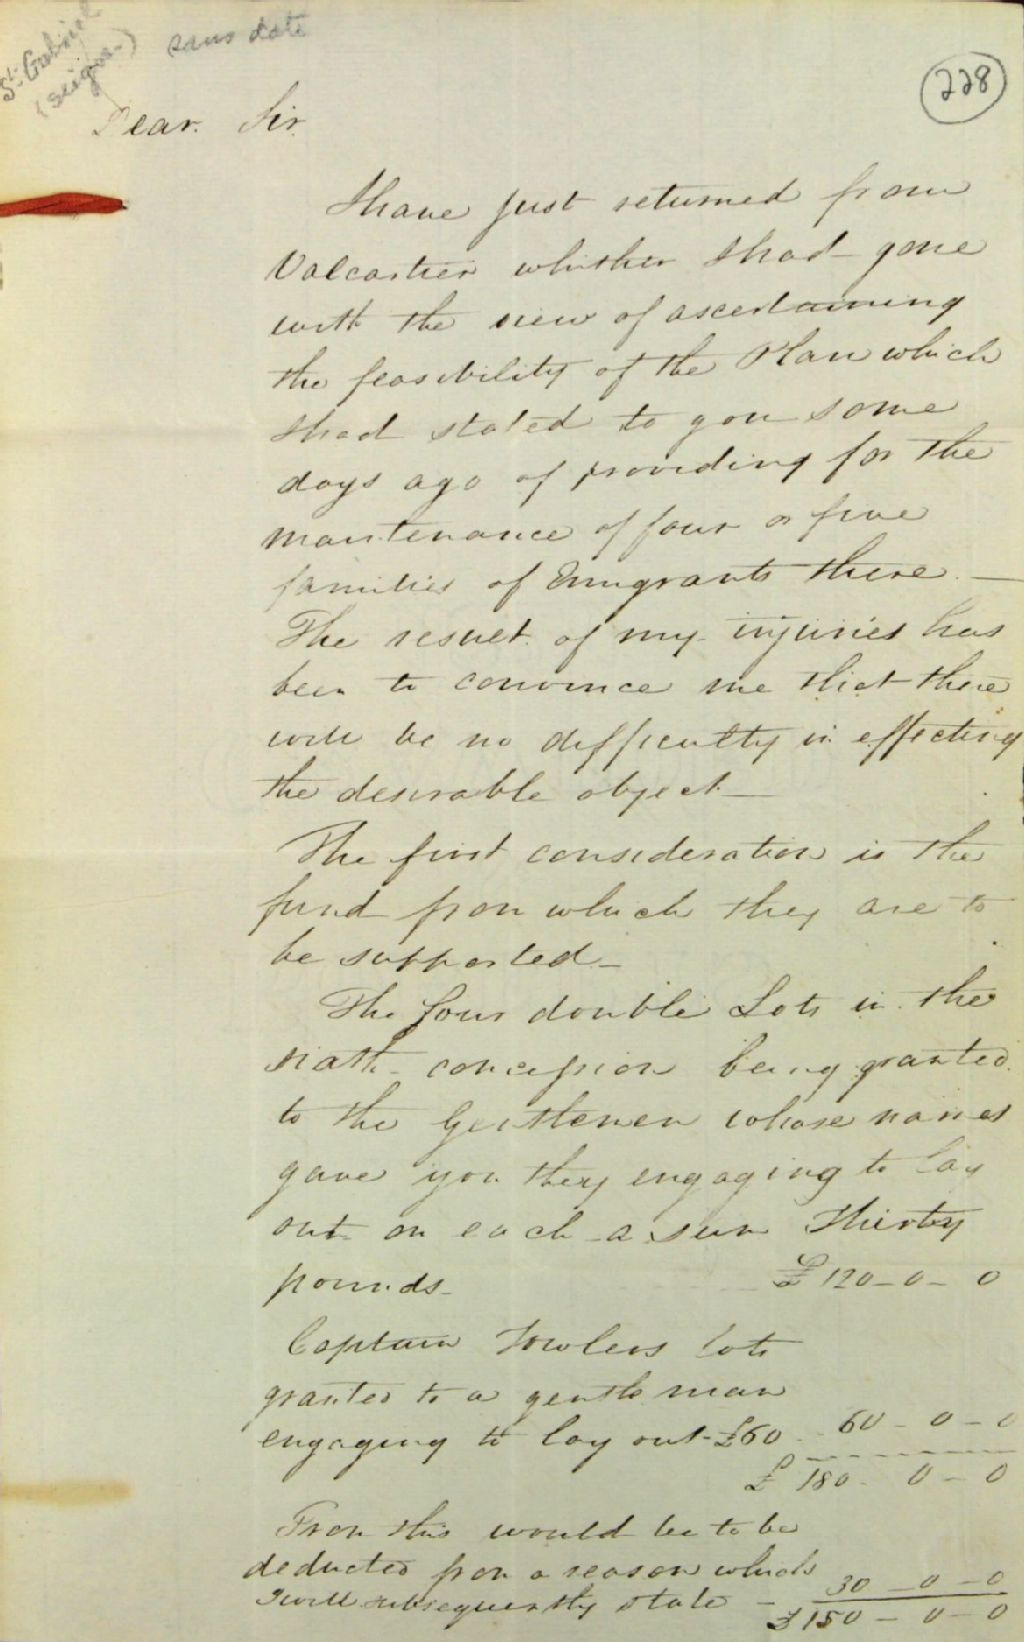 St. Gabriel
(seign.)
sans date
228
Dear Sir
I have just returned from
Valcartier whither I had gone
with the view of ascertaining
the feasibility of the Plan which
I had stated to you some
days ago of providing for the
maintenance of four or five
families of Emigrants there. —
The result of my injuries has
been to convince me that there
will be no difficulty in effecting
the desirable object —
The first consideration is the
fund from which they are to
be supported —
The four double Lots in the
sixth concession being granted
to the Gentlemen whose names
gave you they engaging to lay
out on each a sum Thirty
pounds — £ 120 – 0 – 0
Captain Fowlers lots
granted to a gentleman
engaging to lay out £60 60 – 0 – 0
£ 180 – 0 – 0
From this would be to be
deducted for a reason which
I will subsequently state – 30 – 0 – 0
£ 150 – 0 – 0